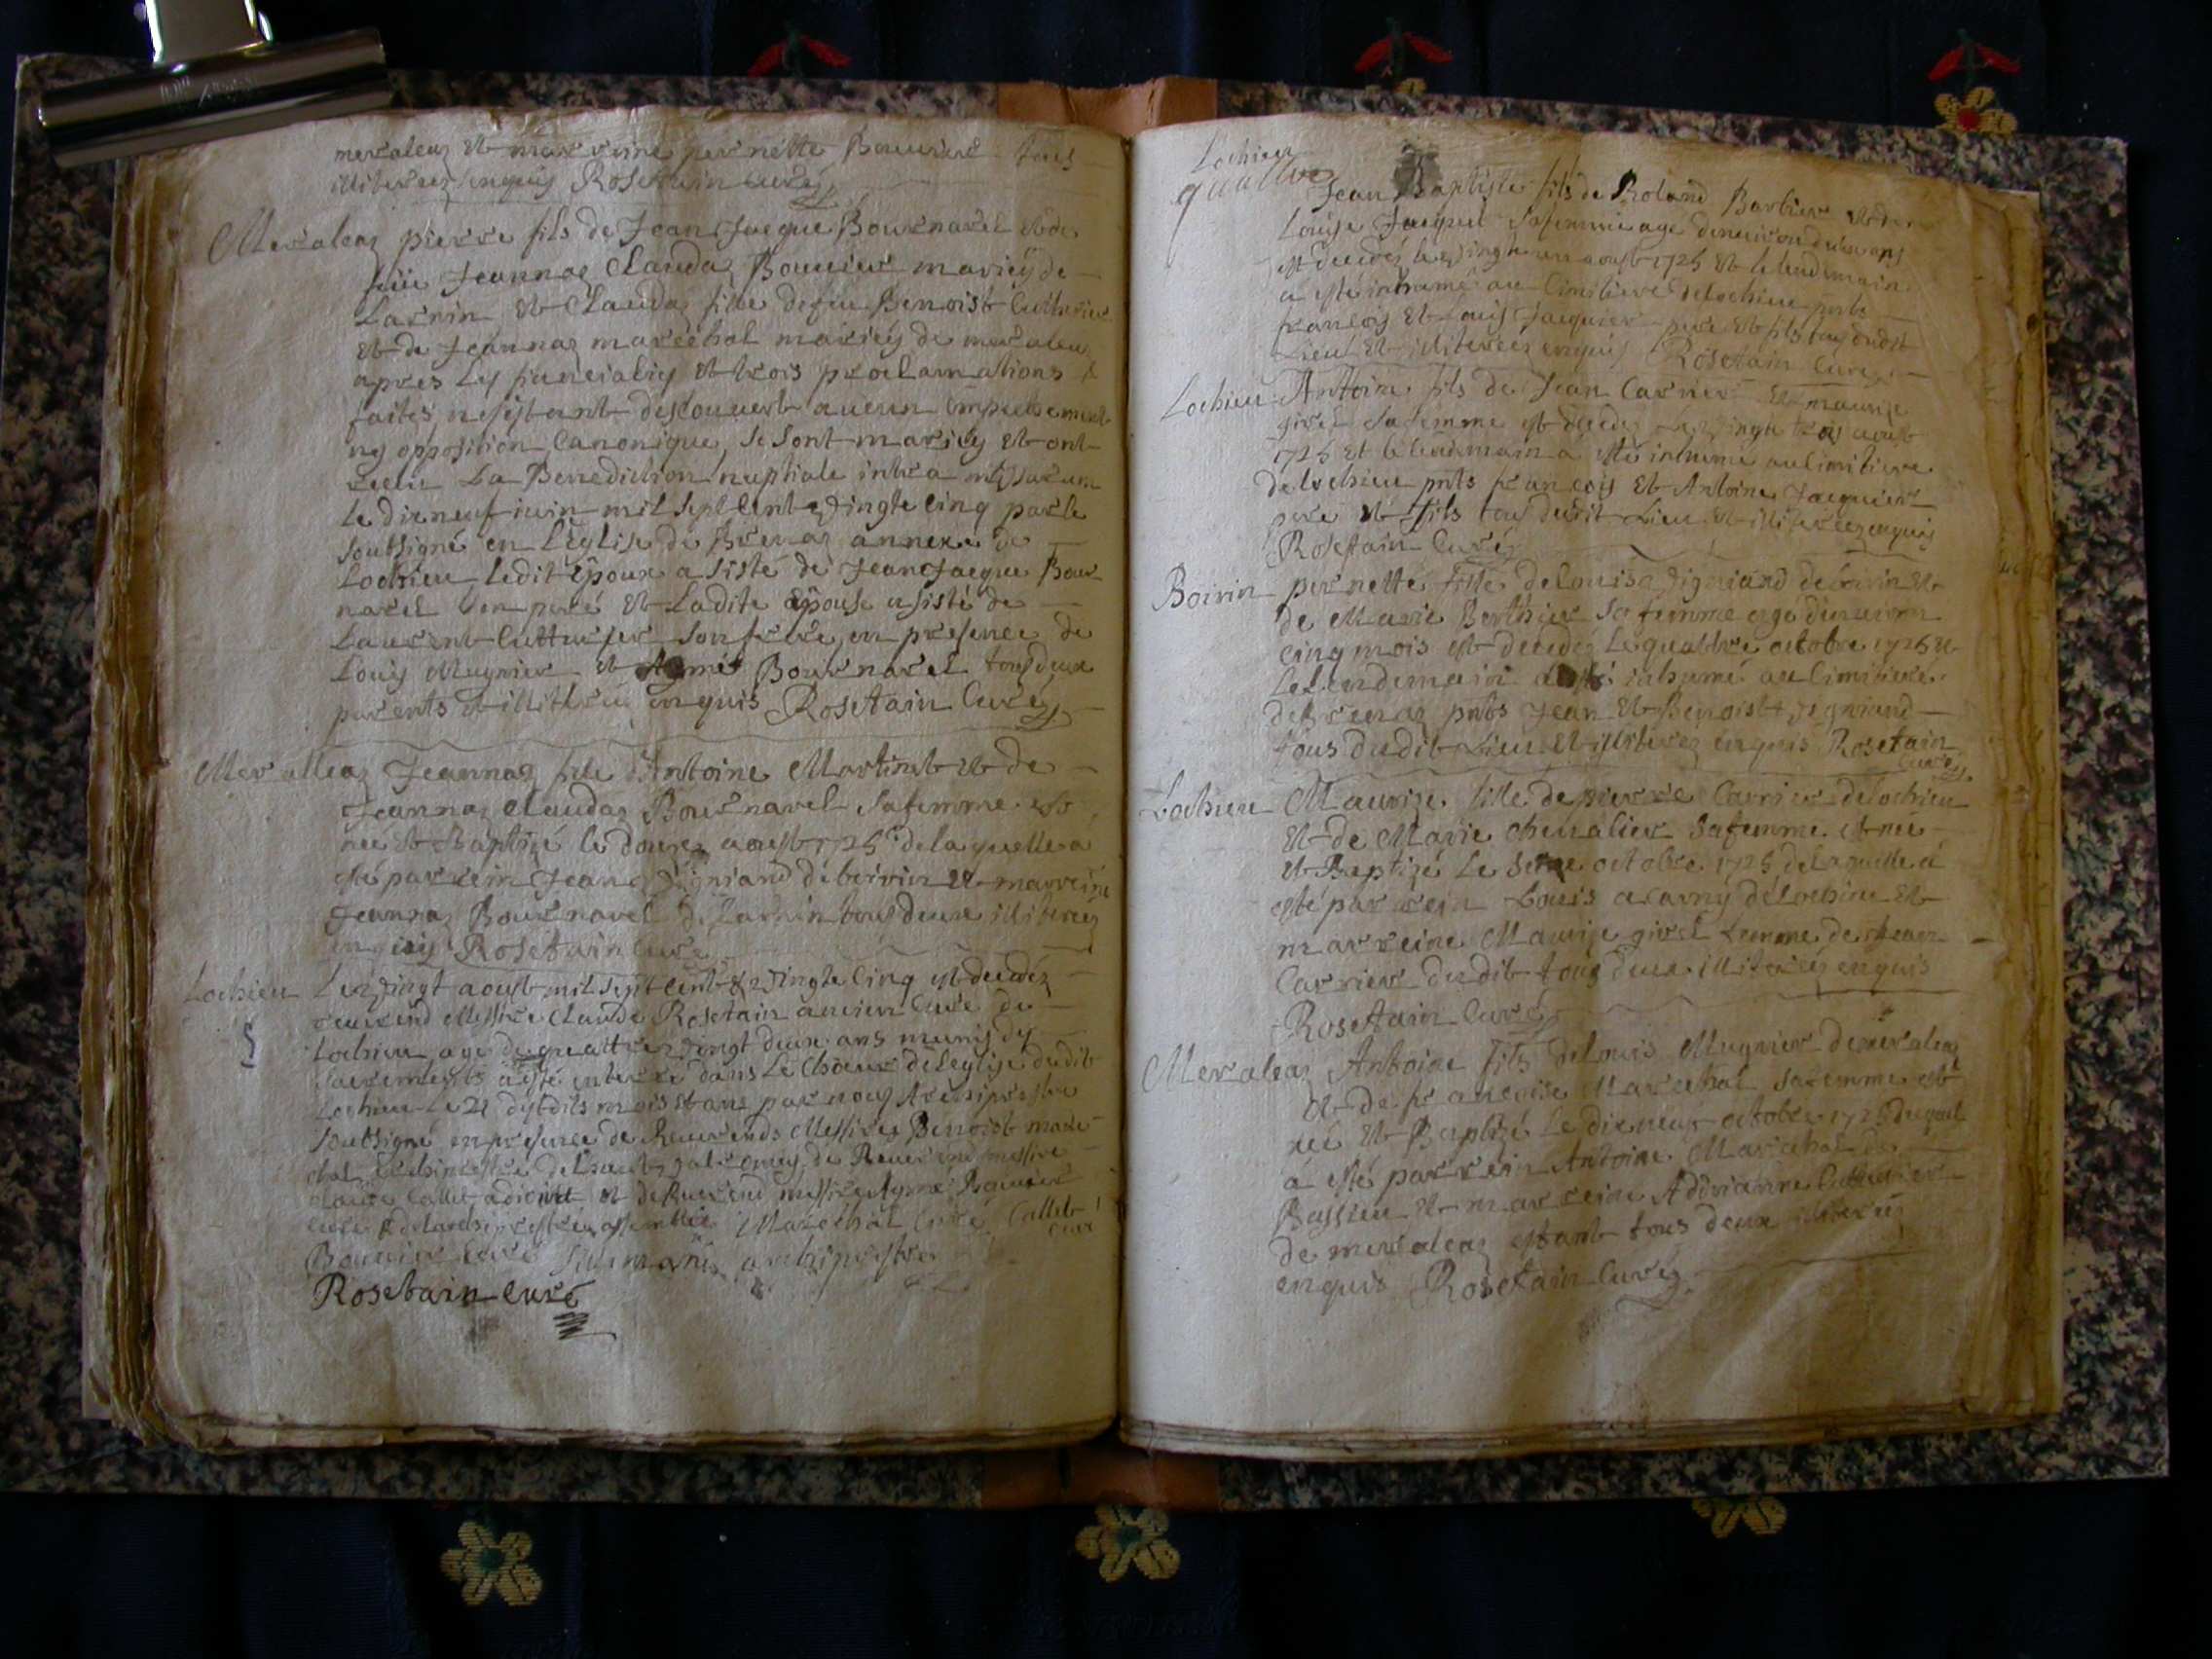 meraleaz et marreine pernette Bouvier tous
illiterez enquis Rosetain curé
Meraleaz pierre fils de Jean Jacque Bournarel et de
feüe Jeannaz Claudaz Bouvier mariéz de
Larnin et Claudaz fille de feu Benoist Cutturier
et de Jeannaz maréchal mariéz de meraleaz
apres les fianciales et trois proclamations
faites, nesistant descouvert aucun Empechement
ny opposition Canonique, se sont mariéz et ont
receu La Benediction nuptiale intra missarum
le dixneuf iuin mil sept Cent et vingte cinq par le
soubsigné en Leglise de Brenaz annexe de
Lochieu ledit Epoux asisté de Jean Jacque Bour
narel son peré et Ladite Epouse asisté de
Laurent Cutturier son frere, en presence de
Louis Mugnier et Aymé Bournarel tous deux
parents et illiterez enquis Rosetain Curé
Meralleaz Jeannaz fille d'Antoine Martinet et de
Jeannaz Claudaz Bournarel sa femme est
neé et Baptizé le douze aoust 1725 de laquelle a
esté parrein Jean Vigniand de boirin et marreine
Jeannaz Bournarel de Larnin tous deux illiterez
enquis Rosetain Curé
Lochieu Le vingt aoust mil sept Cent & vingte Cinq est decedéz
reverend Messire Claude Rosetain ancien Curé de
Lochieu agé de quattre vingt deux ans munis des
sacrements a esté enterré dans Le Choeur de Leglise dudit
Lochieu Le 21 desdits mois et ans par nous Archiprestre
soubsigné en presence de Reverends Messires Benoist maré
chal Archiprestre de de Reverend messire
Claude Callet et de Reverend messire Ayme Bouvier
curé Maréchal Curé Callet
curé
Bouvier Curé archiprestre
Rosetain curé
Lochieu
quattre
Jean Baptiste fils de Roland Barbier et de
Louise Jacquet sa femme agé denviron deux ans
est decedéz le vingte un aoust 1725 et le lendemain
a esté inhumé au Cimitiere de Lochieu pnts
francois et Louis Jacquier pere et fils tous dudit
Lieu et illiterez enquis Rosetain Curé
Lochieu Antoine fils de Jean Carrier et maurize
girel sa femme est decedéz le vingte trois aoust
1725 et le lendemain a esté inhumé au Cimitiere
de Lochieu pnts francois et Antoine Jacquier
pere et fils tous dudit Lieu et illiterez enquis
Rosetain Curé
Boirin pernette fille de Louis Vigniand de boirin et
de Marie Berthier sa femme agé denviron
cinq mois est decedéz Le quattre octobre 1725 et
Le Lendemain a esté inhumé au Cimitiere
de brenaz pnts Jean et Benoist Vigniand
tous dudit Lieu et illiterez enquis Rosetain
Curé
Lochieu Maurize fille de pierre Carrier de Lochieu
et de Marie Chevalier sa femme est née
et Baptizé Le seize octobre 1725 de laquelle a
esté parrein Louis de Lochieu et
marreine Maurize girel femme de Jean
Carrier dudit tous deux illiterez enquis
Rosetain Curé
Meraleaz Antoine fils de Louis Mugnier de meraleaz
et de francoise Marechal sa femme est
neé et Baptizé Le dixneuf octobre 1725 duquel
a esté parrein Antoine Marechal de
Bassieu et marreine Adrianne Cutturier
de meraleaz estant tous deux illiterez
enquis Rosetain Curé